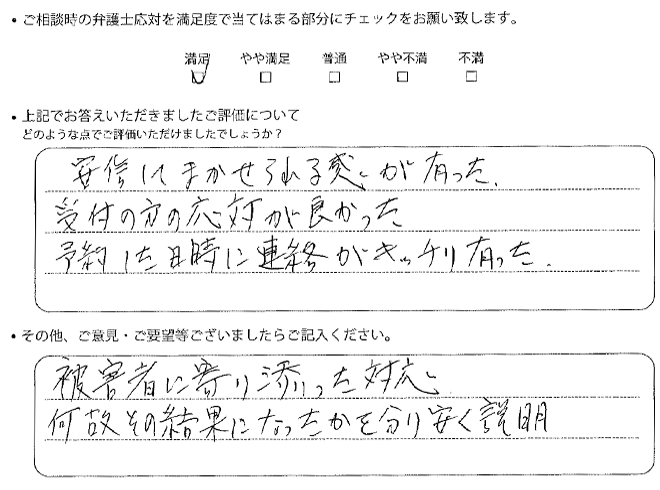 ・ご相談時の弁護士応対を満足度で当てはまる部分にチェックをお願い致します。
満足 やや満足 普通 やや不満 不満
・上記でお答えいただきましたご評価について
どのような点でご評価いただけましたでしょうか？
安信してまかせられる感じが有った、
受付の方の応対が良かった
予約した日時に連絡がキッチリ有った、
・その他、ご意見・ご要望等ございましたらご記入ください。
被害者に寄り添った対応
何故その結果になったかを分り安く説明